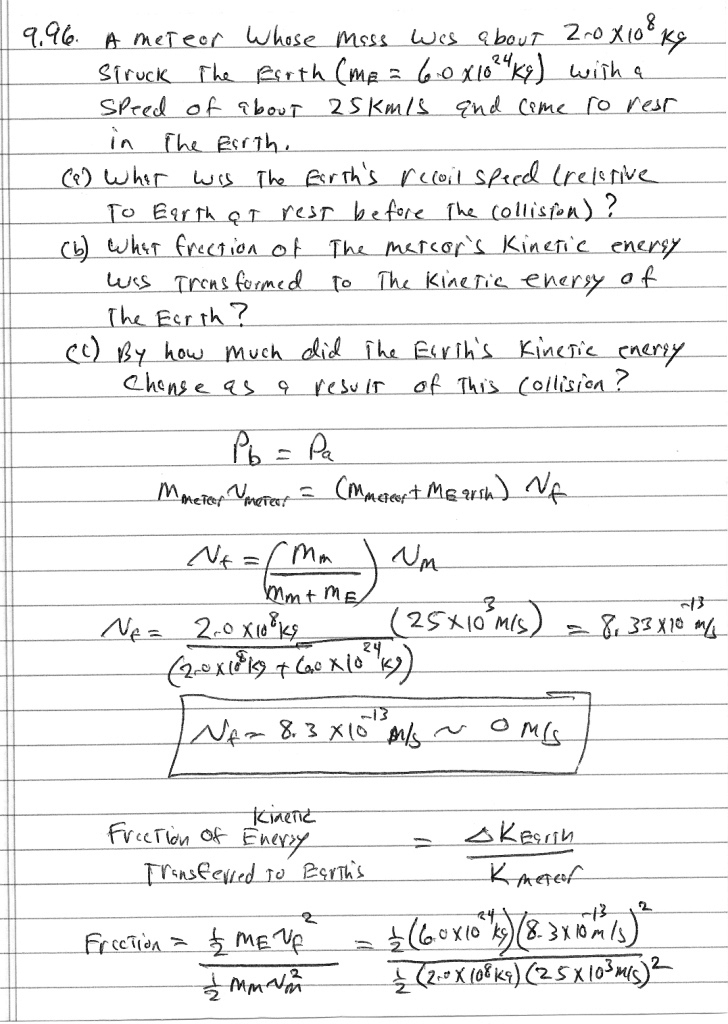 9.96. A meteor whose mass was about 2.0 x10^8 kg
struck the Earth (mE = 6.0 x10^24 kg) with a
speed of about 25 km/s and came to rest
in the Earth.
(a) What was the Earth's recoil speed (relative
to Earth at rest before the collision)?
(b) What fraction of the meteor's kinetic energy
was transformed to the kinetic energy of
the Earth?
(c) By how much did the Earth's kinetic energy
change as a result of this collision?
Pb = Pa
Mmeteor Vmeteor = (Mmeteor + MEarth) Vf
Vf = (Mm / (Mm + ME)) Vm
Vf = 2.0 x10^8 kg / (2.0 x10^8 kg + 6.0 x10^24 kg) (25 x10^3 m/s) = 8.33 x10^-13 m/s
Vf = 8.3 x10^-13 m/s ~ 0 m/s
Fraction of Kinetic Energy Transferred to Earth's = ΔKEarth / Kmeteor
Fraction = ½ ME Vf^2 / ½ Mm Vm^2 = ½ (6.0 x10^24 kg)(8.3 x10^-13 m/s)^2 / ½ (2.0 x10^8 kg)(25 x10^3 m/s)^2